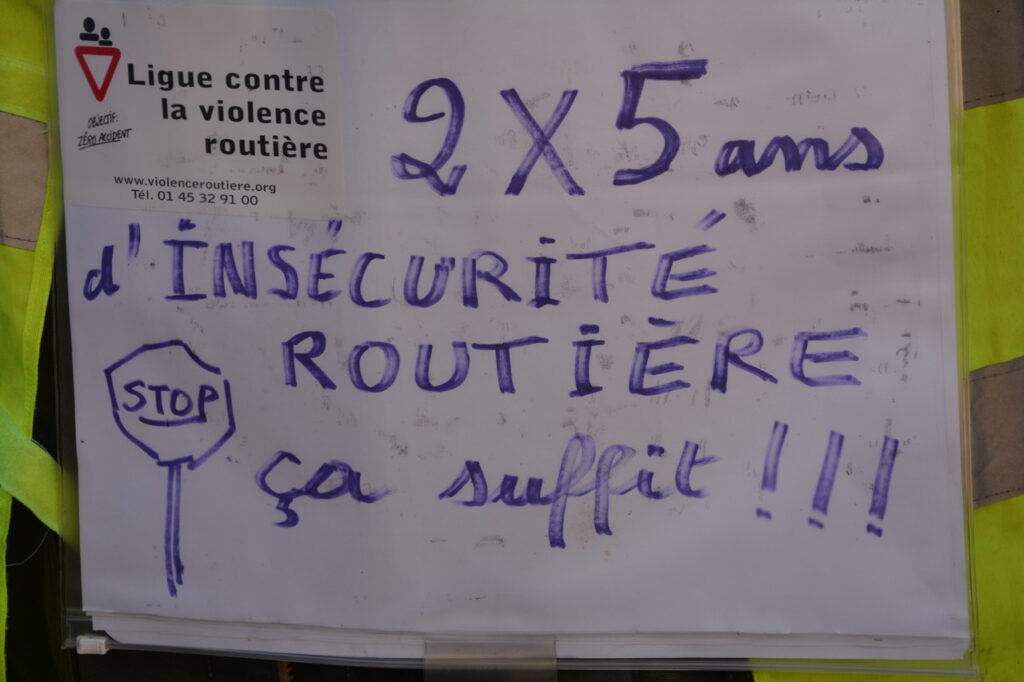 Ligue contre
la violence
routière
OBJECTIF:
ZÉRO ACCIDENT
www.violenceroutiere.org
Tél. 01 45 32 91 00
2 X 5 ans
d'INSÉCURITÉ
ROUTIÈRE
STOP
ça suffit !!!